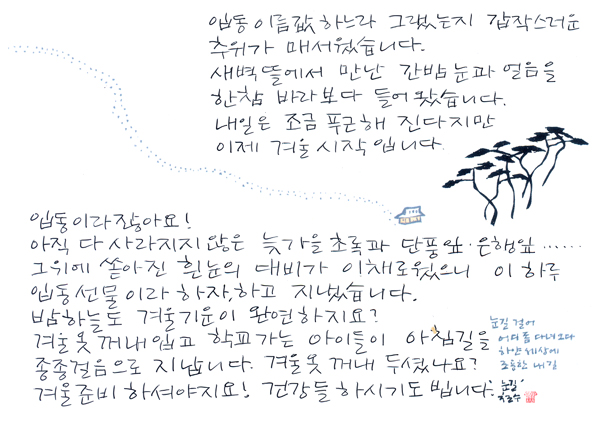 입동 이름값 하느라 그랬는지 갑작스러운
추위가 매서웠습니다.
새벽뜰에서 만난 간밤 눈과 얼음을
한참 바라보다 들어왔습니다.
내일은 조금 푸근해 진다지만
이제 겨울 시작입니다.
입동이라잖아요!
아직 다 사라지지 않은 늦가을 초록과 단풍잎·은행잎……
그위에 쏟아진 흰눈의 대비가 이채로웠으니 이 하루
입동선물이라 하자, 하고 지냈습니다.
밤하늘도 겨울기운이 완연하지요?
겨울옷 꺼내 입고 학교가는 아이들이 아침길을
종종걸음으로 지납니다. 겨울옷 꺼내 두셨나요?
겨울준비 하셔야지요! 건강들 하시기도 빕니다.
눈길 걸어
하얀 세상에
조용한 내 길
눈길